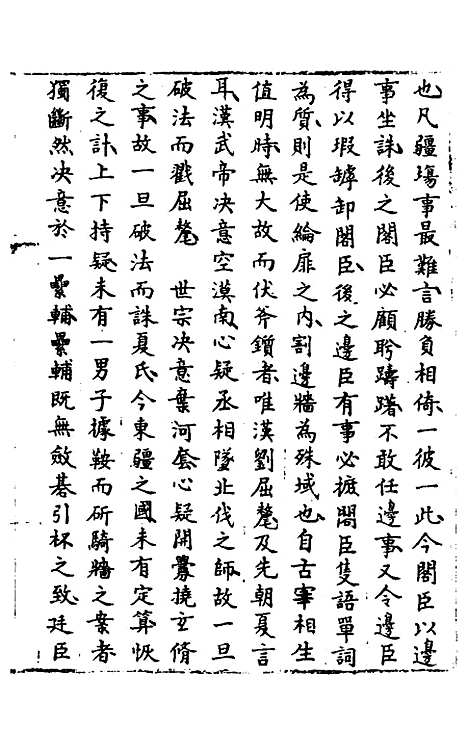 也凡疆埸事最難言勝負相倚一彼一此今閣臣以邊
事坐誅後之閣臣必顧盻躊躇不敢任邊事又令邊臣
得以瑕罅卸閣臣後之邊臣有事必摭閣臣隻語單詞
為質則是使綸扉之內割邊牆為殊域也自古宰相生
值明時無大故而伏斧鑕者唯漢劉屈氂及先朝夏言
耳漢武帝决意空漠南心疑丞相隧北伐之師故一旦
破法而戳屈氂　世宗决意棄河套心疑開釁撓玄脩
之事故一旦破法而誅夏氏今東疆之國未有定算恢
復之計上下持疑未有一男子據鞍而斫騎牆之案者
獨斷然决意於一纍輔纍輔既無斂碁引杯之致廷臣